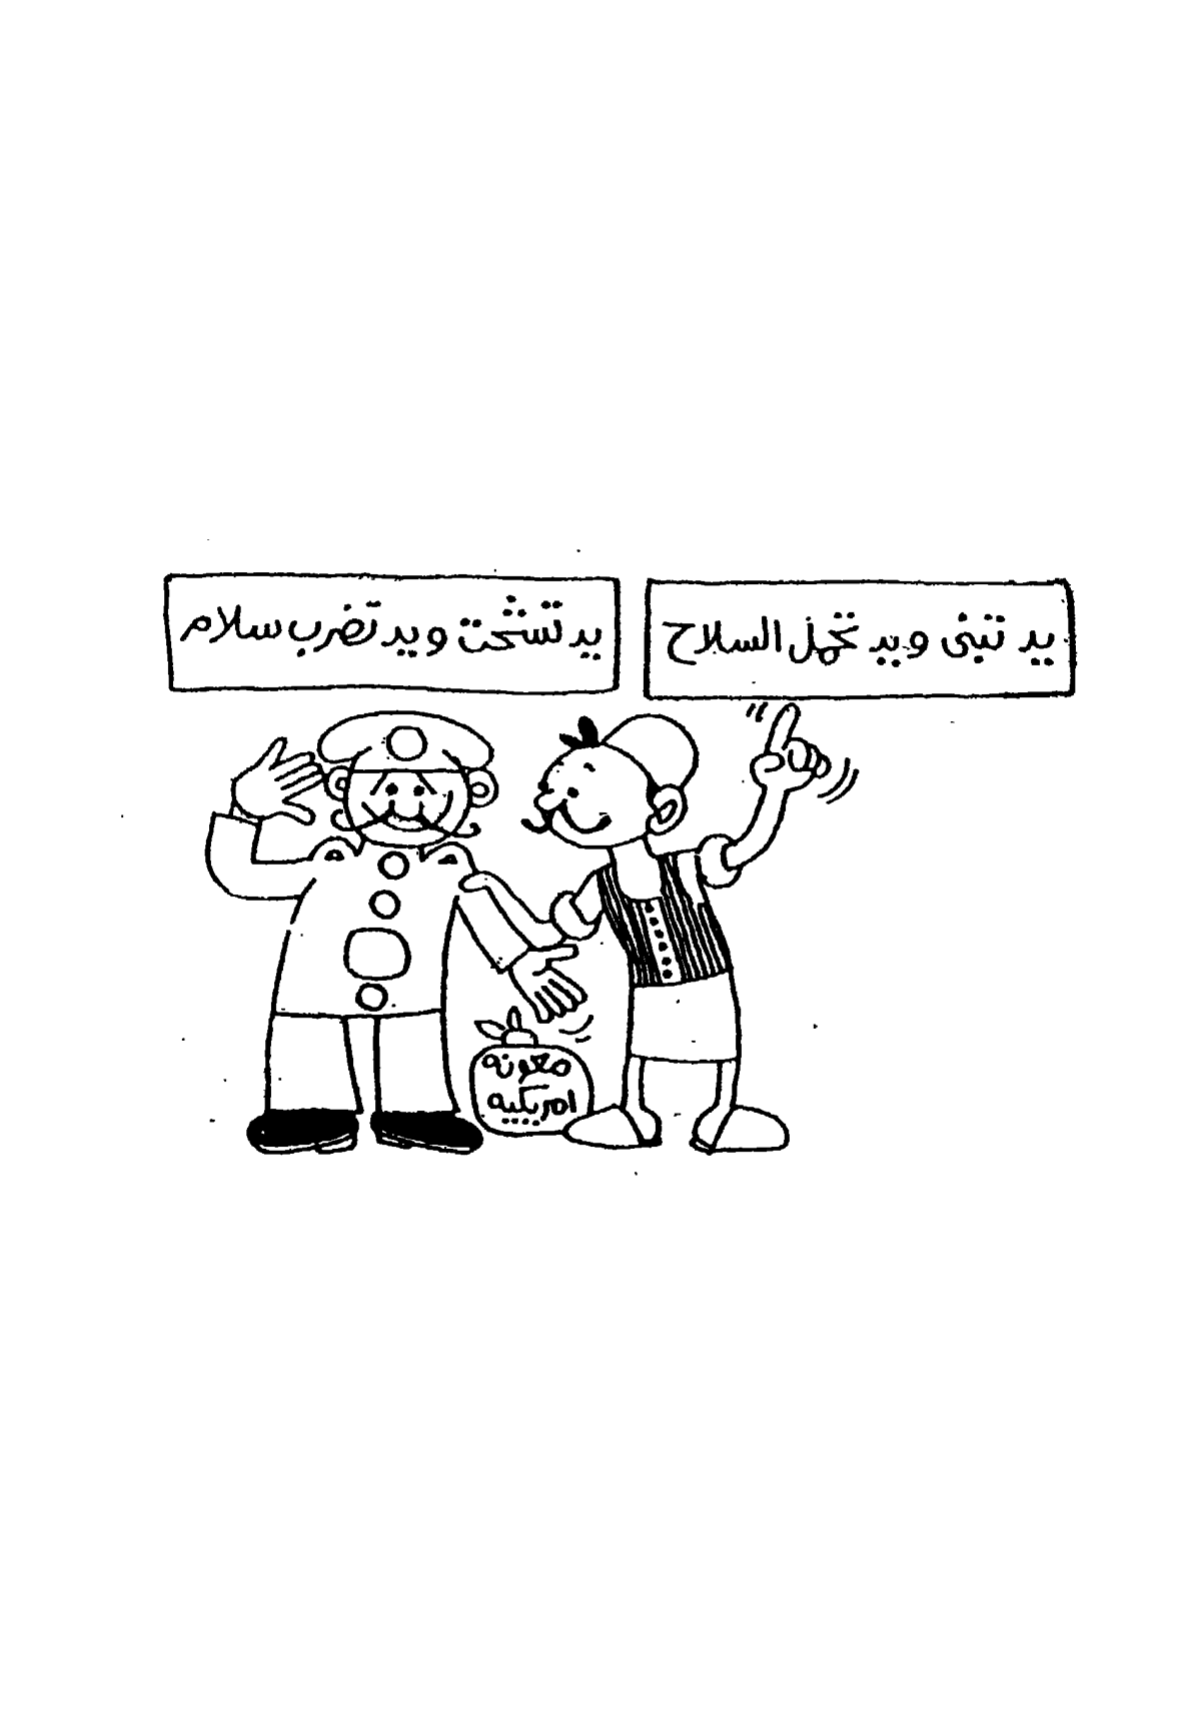 يد تبنى ويد تحمل السلاح
يد تشحت ويد تضرب سلام
معونه
امريكيه